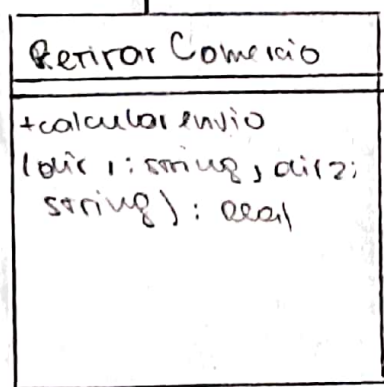 Retirar Comercio
+calcular envio
(dir 1: string, dir2:
string): real